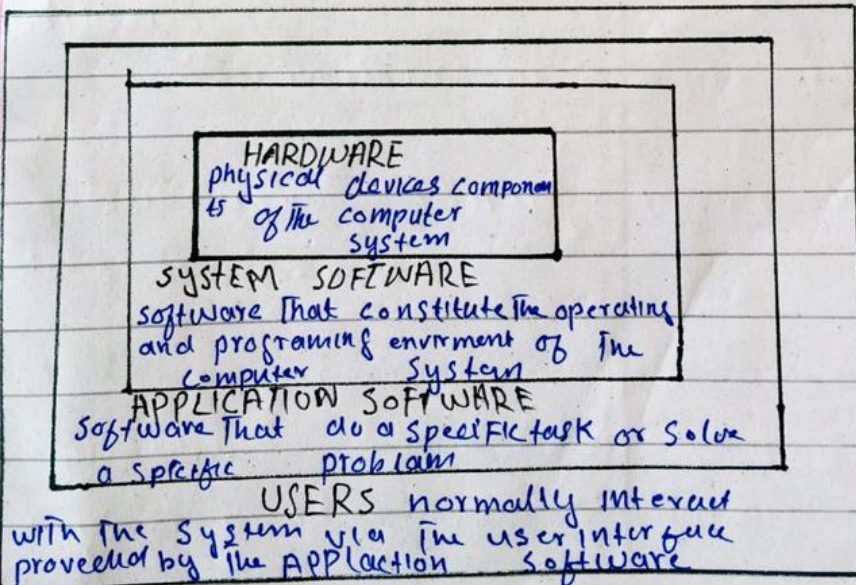 HARDWARE
physical devices componen
ts of The computer
system
SYSTEM SOFTWARE
software That constitute The operating
and programing envirment of The
computer System
APPLICATION SOFTWARE
software That do a specific task or solve
a specific problam
USERS normally interact
with The System via The user interface
proveded by The APPLaction software